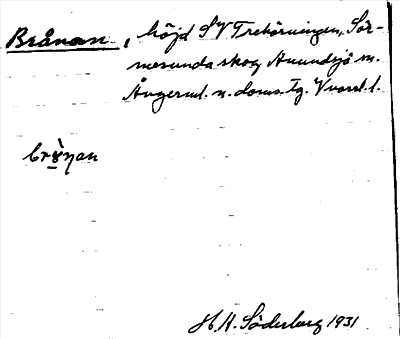 Brånan, höjd SV Trehörningen, Sör-
mesunda skog Anundsjö sn.
Ångerml. n. doms. Tg.
brỳ̠ŋan
H. H. Söderberg 1931